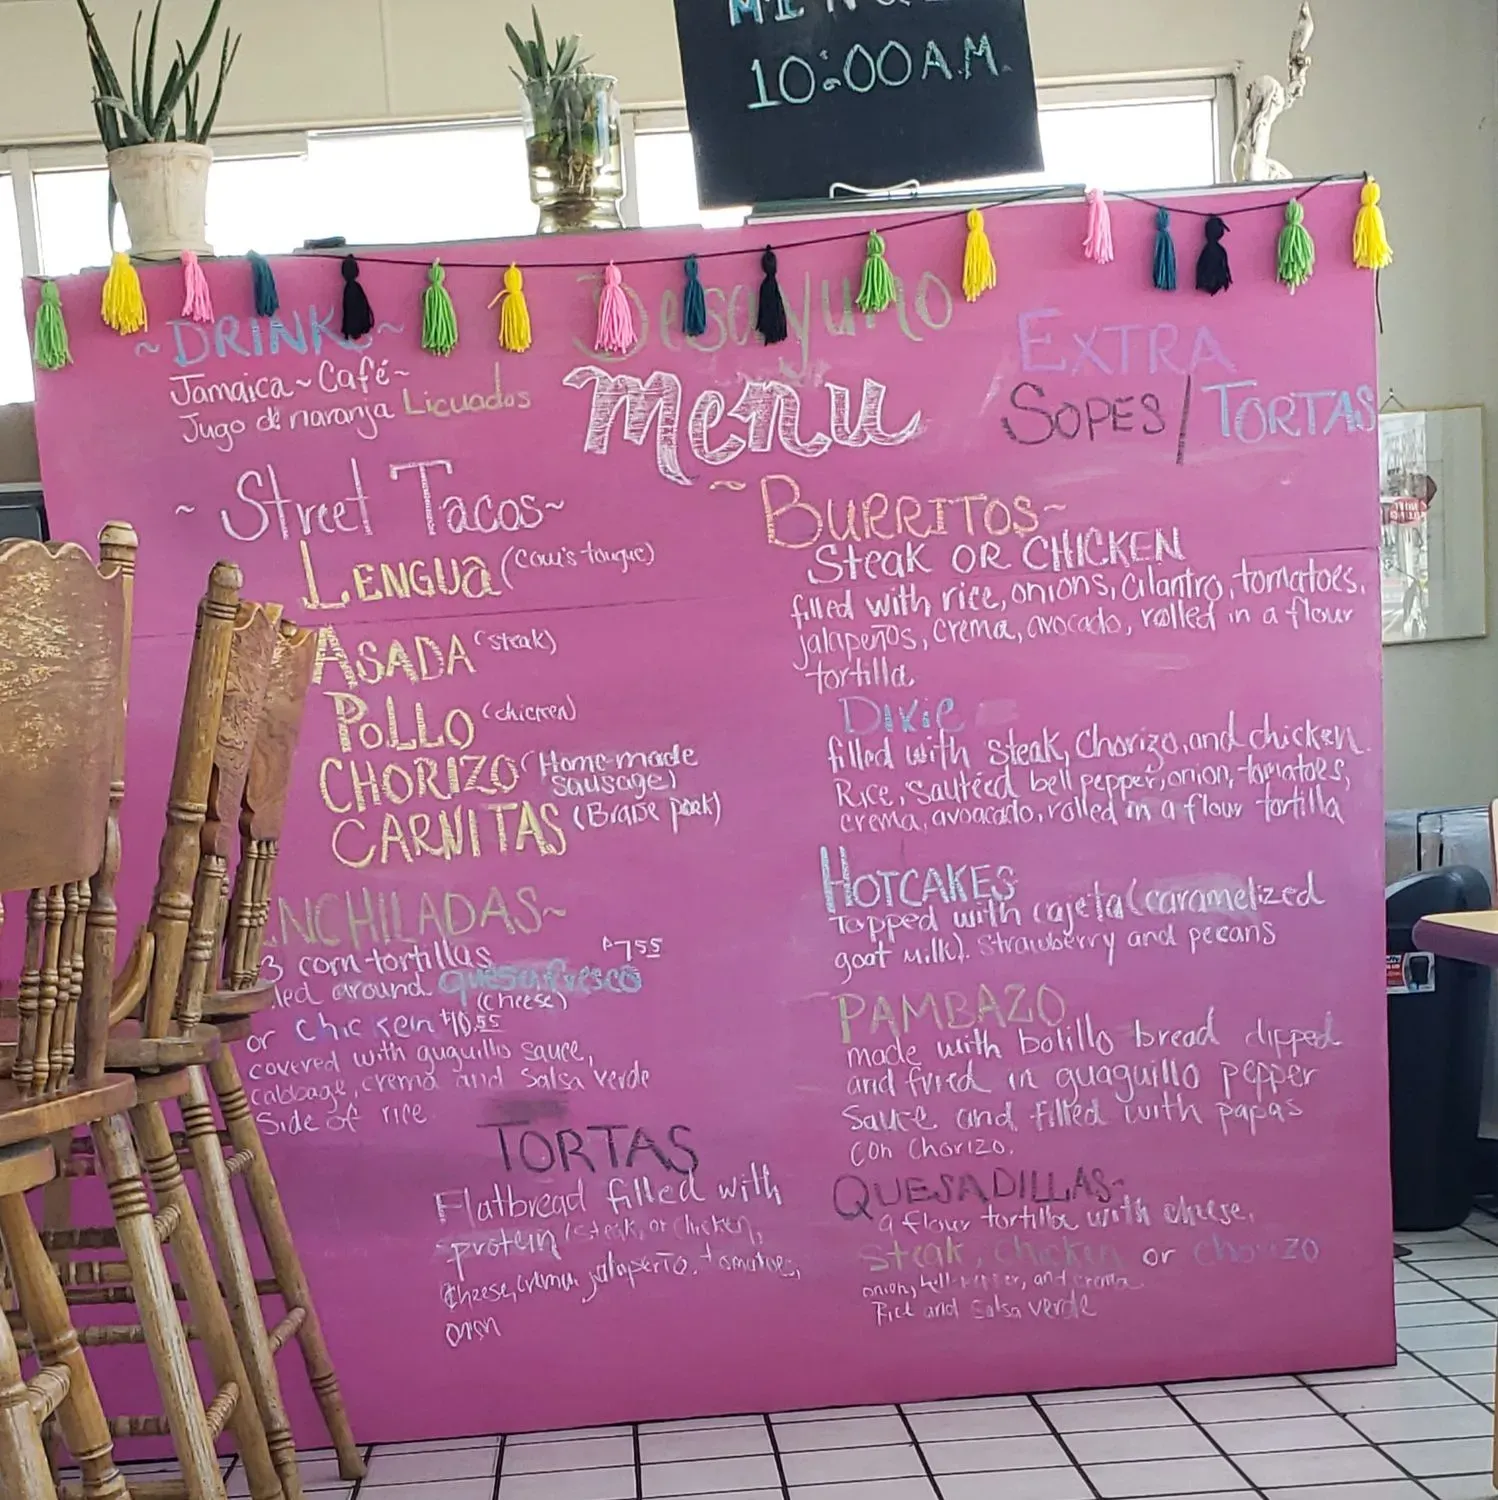 10:00 A.M.
~DRINK~
Jamaica~Café~
Jugo de naranja Licuados
Desayuno
menu
EXTRA
SOPES/TORTAS
~Street Tacos~
LENGUA (Cow's tongue)
ASADA (steak)
POLLO (chicken)
CHORIZO (Home-made
sausage)
CARNITAS (Braise pork)
NCHILADAS~
3 corn tortillas $7.55
led around quesofresco
(cheese)
or Chicken $10.55
covered with guguillo sauce,
cabbage, crema and salsa verde
Side of rice
TORTAS
Flatbread filled with
protein (steak, or chicken,
cheese, crema, jalapeño, tomatoes,
onion
~BURRITOS~
Steak OR CHICKEN
filled with rice, onions, cilantro, tomatoes,
jalapeños, crema, avocado, rolled in a flour
tortilla
DIXIE
filled with steak, chorizo, and chicken.
Rice, sautéed bell pepper, onion, tomatoes,
crema, avoacado, rolled in a flour tortilla
HOTCAKES
Topped with cajeta (caramelized
goat milk). Strawberry and pecans
PAMBAZO
made with bolillo bread dipped
and fried in guaguillo pepper
sauce and filled with papas
con chorizo.
QUESADILLAS~
a flour tortilla with cheese,
steak, chicken or chorizo
onion, bell-pepper, and crema
Rice and salsa verde